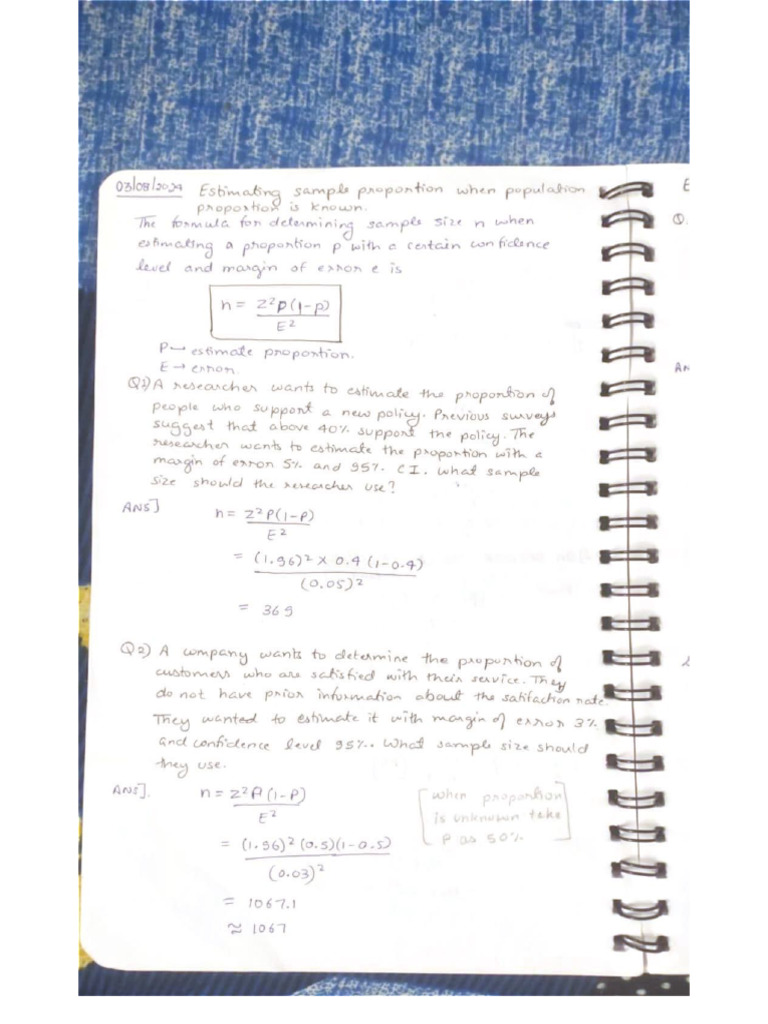 03/08/2024 Estimating sample proportion when population
proportion is known.
The formula for determining sample size n when
estimating a proportion p with a certain confidence
level and margin of error e is
n = Z²p(1-p)
E²
P → estimate proportion.
E → error.
Q1) A researcher wants to estimate the proportion of
people who support a new policy. Previous surveys
suggest that above 40% support the policy. The
researcher wants to estimate the proportion with a
margin of error 5% and 95% CI. What sample
size should the researcher use?
ANS] n = Z²P(1-P)
E²
= (1.96)² x 0.4 (1-0.4)
(0.05)²
= 369
Q2) A company wants to determine the proportion of
customers who are satisfied with their service. They
do not have prior information about the satifaction rate.
They wanted to estimate it with margin of error 3%
and confidence level 95%. What sample size should
they use.
ANS]. n = Z²P(1-P)
E²
[when proportion
is unknown take
P as 50%]
= (1.96)² (0.5)(1-0.5)
(0.03)²
= 1067.1
≈ 1067
E
Q.
AN